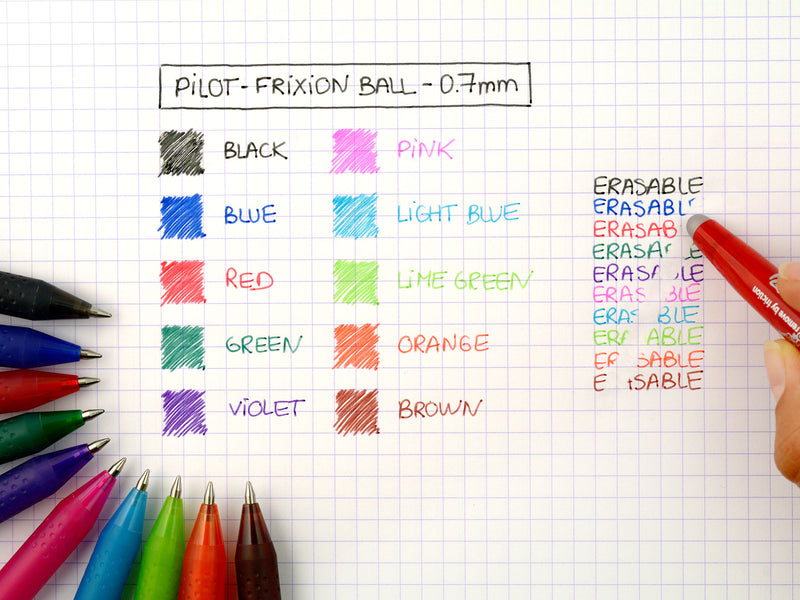 PiLOT - FRiXiON BALL - 0.7mm
BLACK
BLUE
RED
GREEN
ViOLET
PiNK
LiGHT BLUE
LiME GREEN
ORANGE
BROWN
ERASABLE
ERASABL
ERASAB
ERASA LE
ERASA BLE
ERAS BLE
ERA BLE
ER ABLE
ER SABLE
E SABLE
remove by friction